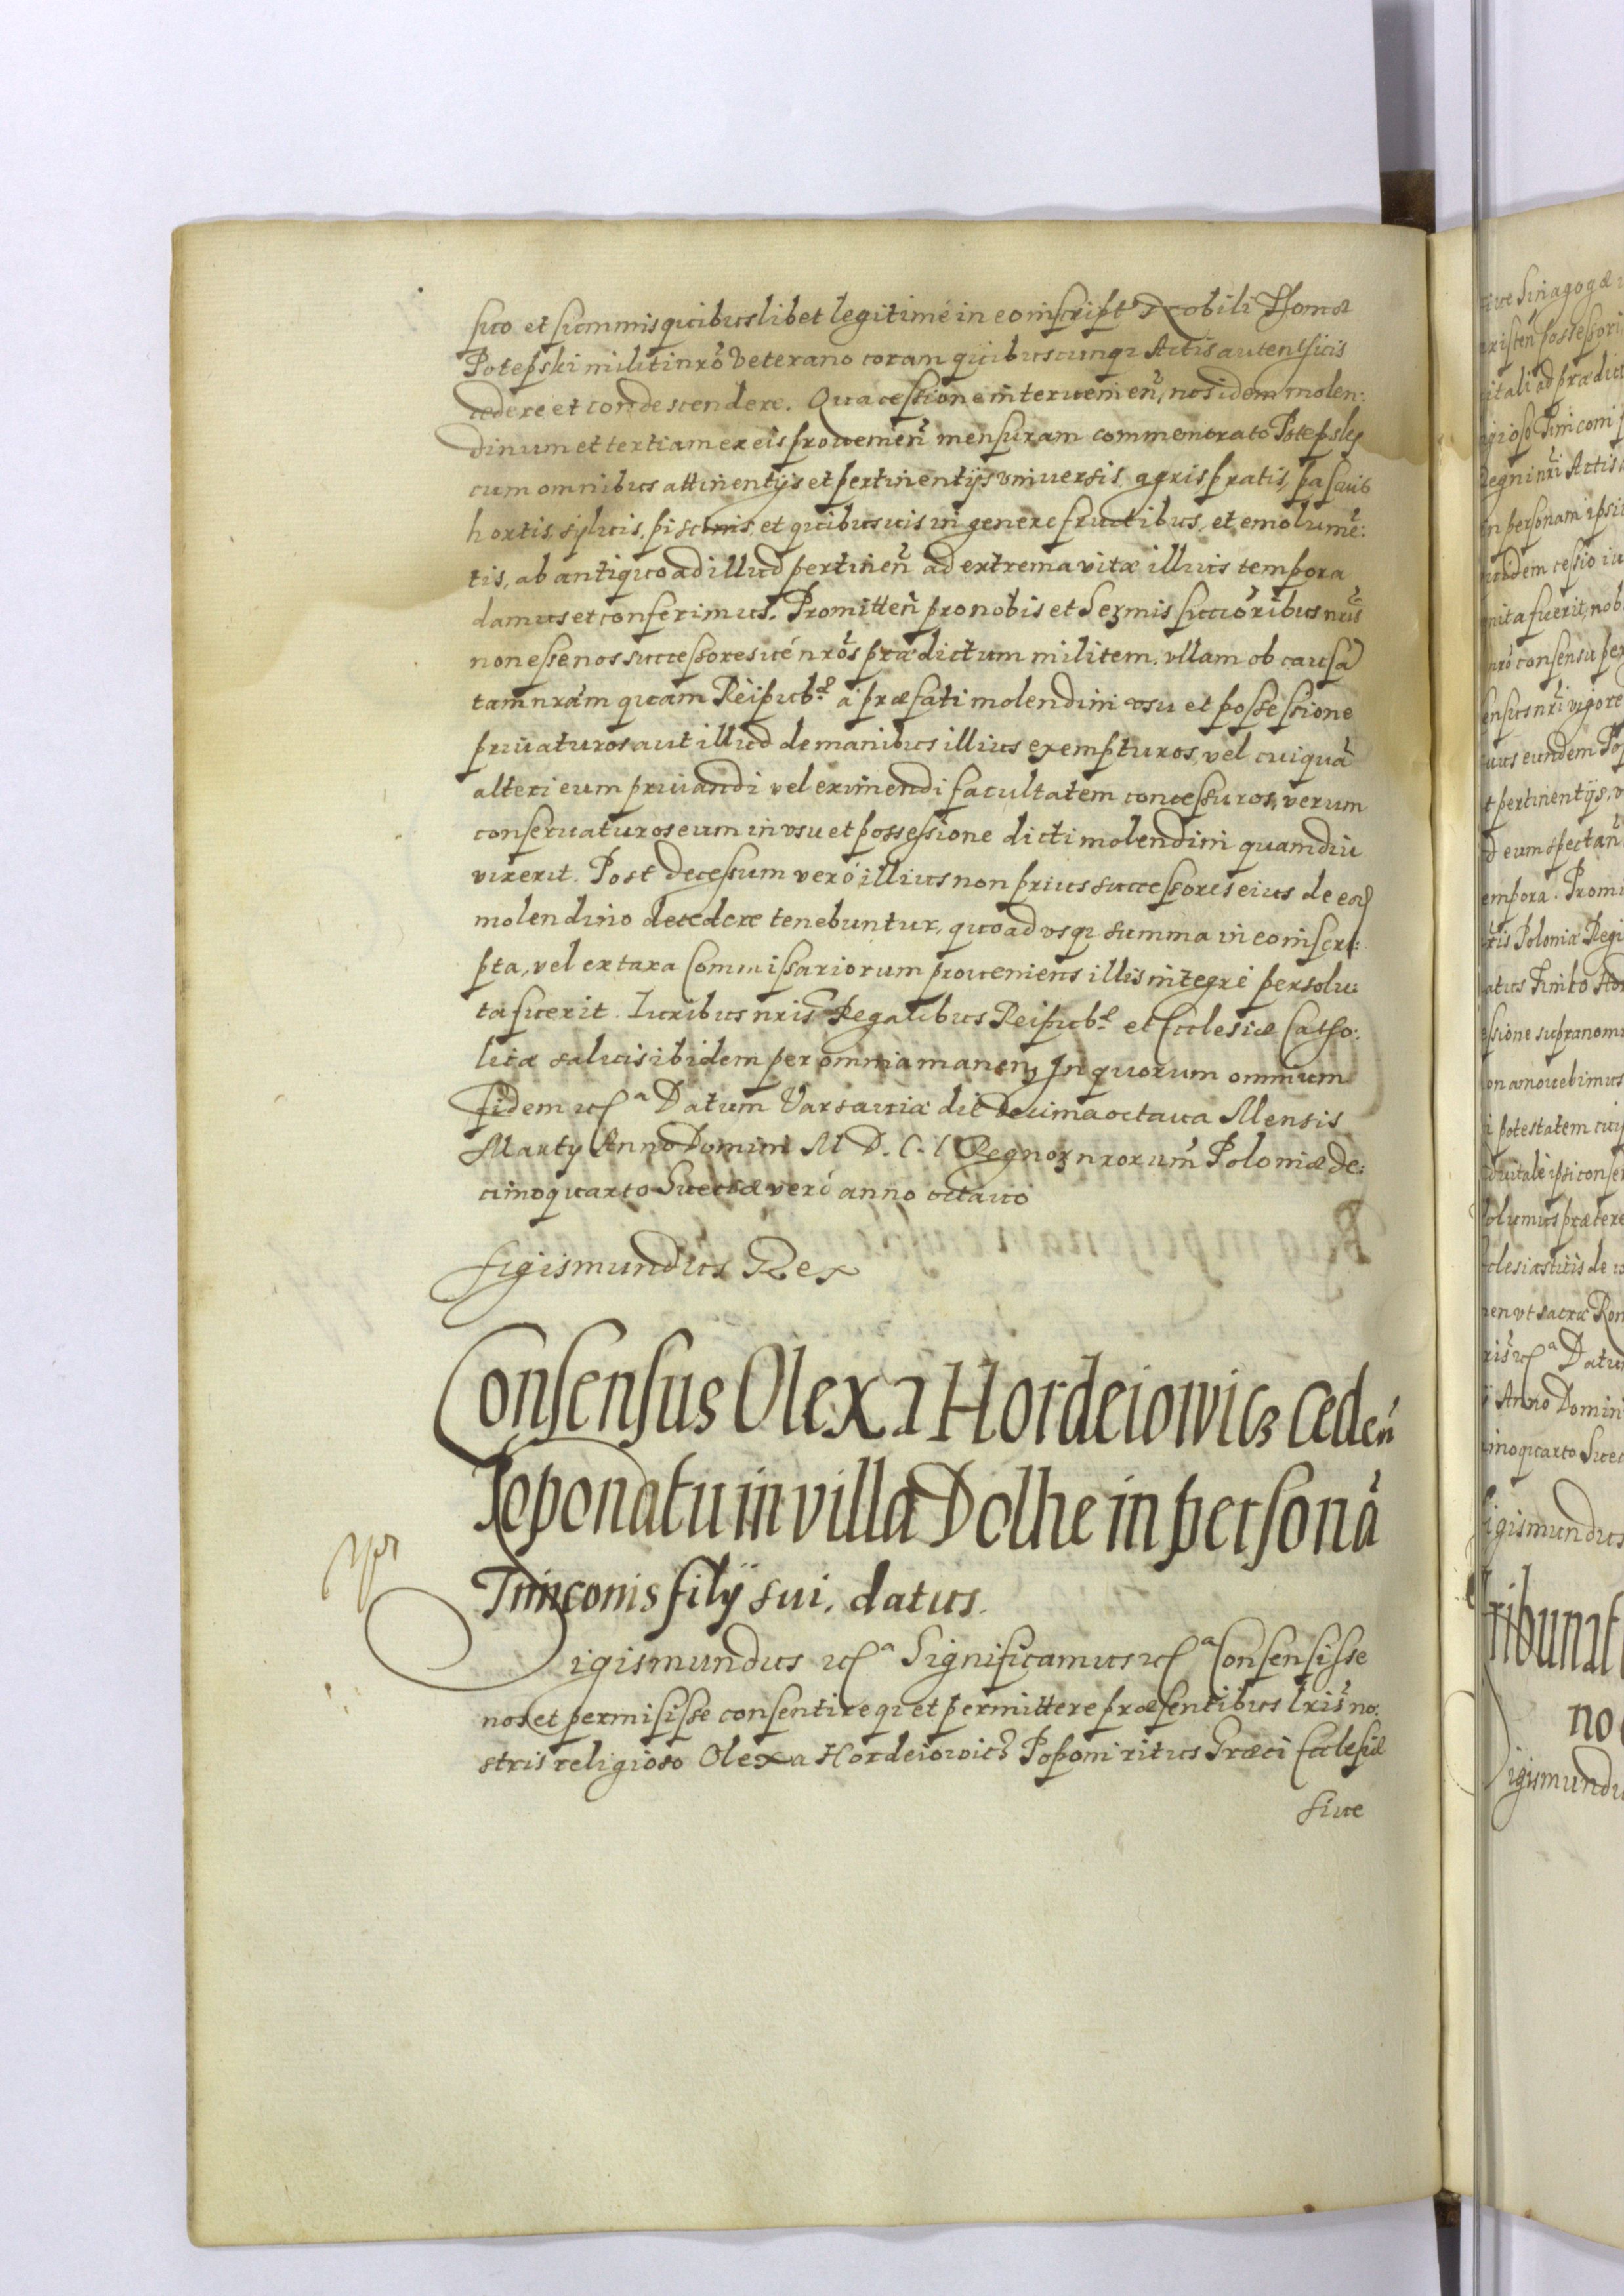 suo et summis quibuslibet legitimè in eo inscript Nobili Thomæ
Potepski militi nrõ Veterano coram quibuscunq₃ Actis autenthicis
cedere et condescendere. Qua cessione intervenien̄, nos idem molen:
dinum et tertiam ex eis provenien̄ mensuram commemorato Potepsky
cum omnibus attinentijs et pertinentijs vniuersis, agris pratis, pascuis
hortis, syluis, piscinis, et quibusuis in genere fructibus, et emolumē:
tis, ab antiquo ad illud pertinen̄ ad extrema vitæ illius tempora
damus et conferimus. Promitten̄ pro nobis et Sermis succõribus nrĩs
non esse nos successoresue nrõs prædictum militem, vllam ob causā
tam nrãm quam Reipubᶜ. à præfati molendini vsu et possessione
priuaturos aut illud de manibus illius exempturos, vel cuiquā
alteri eum priuandi vel eximendi facultatem concessuros, verum
conseruaturos eum in vsu et possessione dicti molendini quamdiu
vixerit. Post decessum verò illius non prius successores eius de eod
molendino decedere tenebuntur, quoad vsq₃ summa in eo inscri:
pta, vel ex taxa Commissariorum proueniens illis integrè persolu:
ta fuerit. Iuribus nris Regalibus Reipubᶜ. et Ecclesiæ Catho:
licæ saluis ibidem per omnia manen̄ In quorum omnium
fidem etcᵃ Datum Varsauiæ die decima octaua Mensis
Martij Anno Domini M D. C. I Regnor nrorum Poloniæ de:
cimoquarto Sueciæ verò anno octauo
Sigismundus Rex
Consensus Olexa Hordeiowicz ceden̄
Poponatu in villa Dolhe in personā
Timconis filij sui, datus.
Sigismundus etcᵃ Significamus etcᵃ Consensisse
nos et permisisse consentireq₃ et permittere præsentibus lrĩs no:
stris religioso Olexa Hordeiowicz Poponi ritus Græci Ecclesiæ
siue